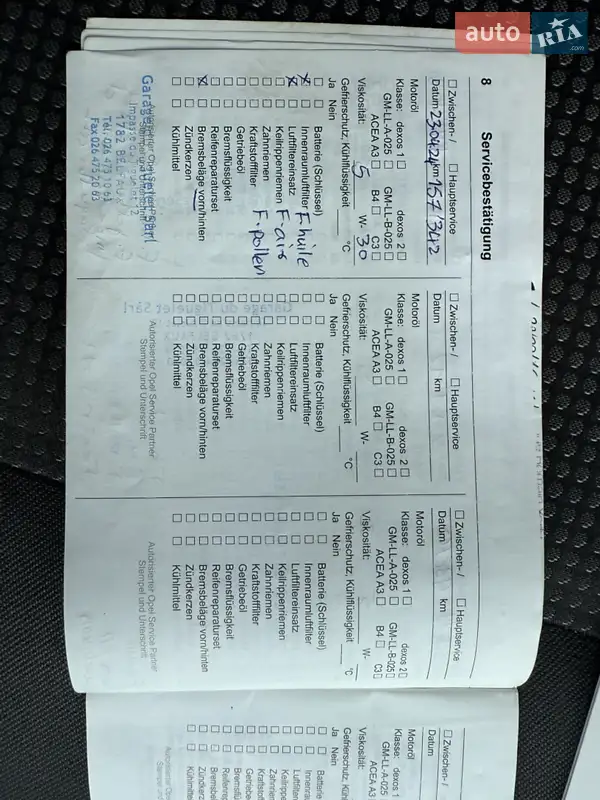 auto RIA .com
8 Servicebestätigung
☐ Zwischen- / ☐ Hauptservice
Datum 230424 km 157'342
Motoröl
Klasse: dexos 1 ☐ dexos 2 ☐
GM-LL-A-025 ☐ GM-LL-B-025 ☐
ACEA A3 ☐ B4 ☐ C3 ☐
Viskosität: 5 W- 30
Gefrierschutz, Kühlflüssigkeit °C
Ja Nein
☐ ☐ Batterie (Schlüssel)
☒ ☐ Innenraumluftfilter F-huile
☒ ☐ Luftfiltereinsatz
☐ ☐ Keilrippenriemen F-air
☐ ☐ Zahnriemen
☐ ☐ Kraftstofffilter F-pollen
☐ ☐ Getriebeöl
☐ ☐ Bremsflüssigkeit
☐ ☐ Reifenreparaturset
☒ ☐ Bremsbeläge vorn/hinten
☐ ☐ Zündkerzen
☐ ☐ Kühlmittel
Autorisierter Opel Service Partner
Stempel und Unterschrift
Tél. 026 475 10 63
Fax 026 475 10 63
☐ Zwischen- / ☐ Hauptservice
Datum km
Motoröl
Klasse: dexos 1 ☐ dexos 2 ☐
GM-LL-A-025 ☐ GM-LL-B-025 ☐
ACEA A3 ☐ B4 ☐ C3 ☐
Viskosität: W-
Gefrierschutz, Kühlflüssigkeit °C
Ja Nein
☐ ☐ Batterie (Schlüssel)
☐ ☐ Innenraumluftfilter
☐ ☐ Luftfiltereinsatz
☐ ☐ Keilrippenriemen
☐ ☐ Zahnriemen
☐ ☐ Kraftstofffilter
☐ ☐ Getriebeöl
☐ ☐ Bremsflüssigkeit
☐ ☐ Reifenreparaturset
☐ ☐ Bremsbeläge vorn/hinten
☐ ☐ Zündkerzen
☐ ☐ Kühlmittel
Autorisierter Opel Service Partner
Stempel und Unterschrift
☐ Zwischen- / ☐ Hauptservice
Datum km
Motoröl
Klasse: dexos 1 ☐ dexos 2 ☐
GM-LL-A-025 ☐ GM-LL-B-025 ☐
ACEA A3 ☐ B4 ☐ C3 ☐
Viskosität: W-
Gefrierschutz, Kühlflüssigkeit °C
Ja Nein
☐ ☐ Batterie (Schlüssel)
☐ ☐ Innenraumluftfilter
☐ ☐ Luftfiltereinsatz
☐ ☐ Keilrippenriemen
☐ ☐ Zahnriemen
☐ ☐ Kraftstofffilter
☐ ☐ Getriebeöl
☐ ☐ Bremsflüssigkeit
☐ ☐ Reifenreparaturset
☐ ☐ Bremsbeläge vorn/hinten
☐ ☐ Zündkerzen
☐ ☐ Kühlmittel
Autorisierter Opel Service Partner
Stempel und Unterschrift
☐ Zwischen- /
Datum
Motoröl
Klasse: dexos 1
GM-LL-A-025
ACEA A3
Viskosität:
Gefrierschutz, Kühl
Ja Nein
☐ ☐ Batterie
☐ ☐ Innenra
☐ ☐ Luftfilte
☐ ☐ Keilripp
☐ ☐ Zahnrie
☐ ☐ Kraftstof
☐ ☐ Getriebe
☐ ☐ Bremsflü
☐ ☐ Reifenre
☐ ☐ Bremsbe
☐ ☐ Zündkerz
☐ ☐ Kühlmitte